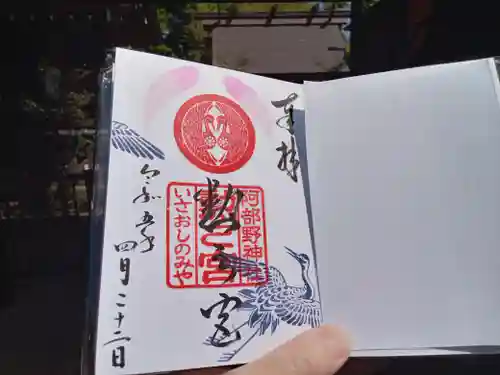 奉拝
阿部野神社
勲之宮
いさおしのみや
令和五年
四月二十二日